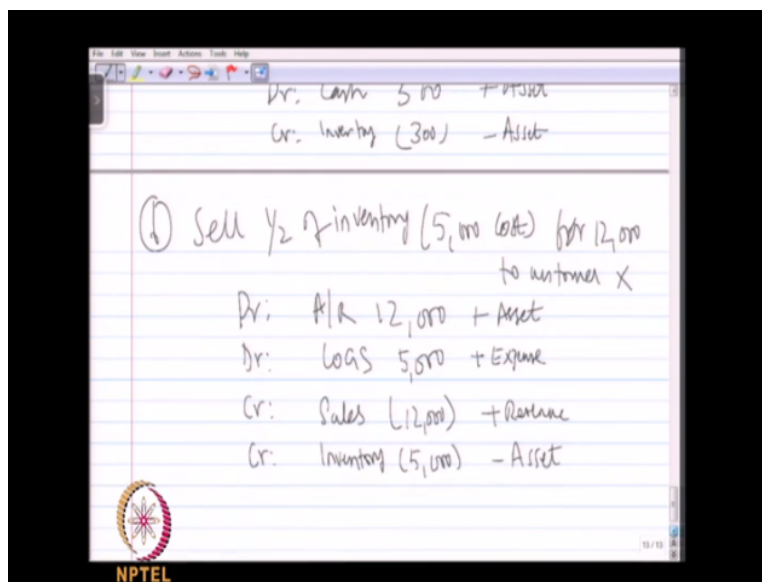 File Edit View Insert Actions Tools Help
Dr: Cash 300 + Asset
Cr: Inventory (300) - Asset
Sell 1/2 of inventory (5,000 cost) for 12,000
to customer X
Dr: A/R 12,000 + Asset
Dr: COGS 5,000 + Expense
Cr: Sales (12,000) + Revenue
Cr: Inventory (5,000) - Asset
13/13
NPTEL